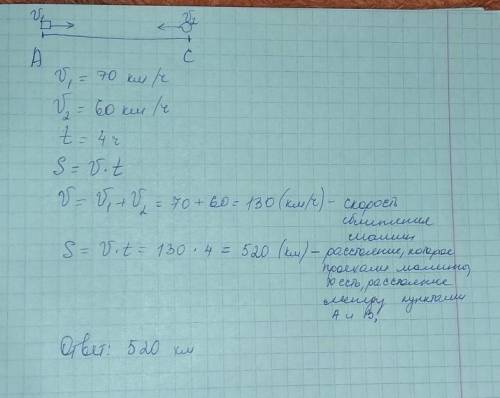 V₁ V₂
A C
V₁ = 70 км/ч
V₂ = 60 км/ч
t = 4 ч
S = V·t
V = V₁ + V₂ = 70 + 60 = 130 (км/ч) – скорость
сближения
машин
S = V·t = 130 · 4 = 520 (км) – расстояние, которое
проехали машины,
то есть, расстояние
между пунктами
A и B,
Ответ: 520 км